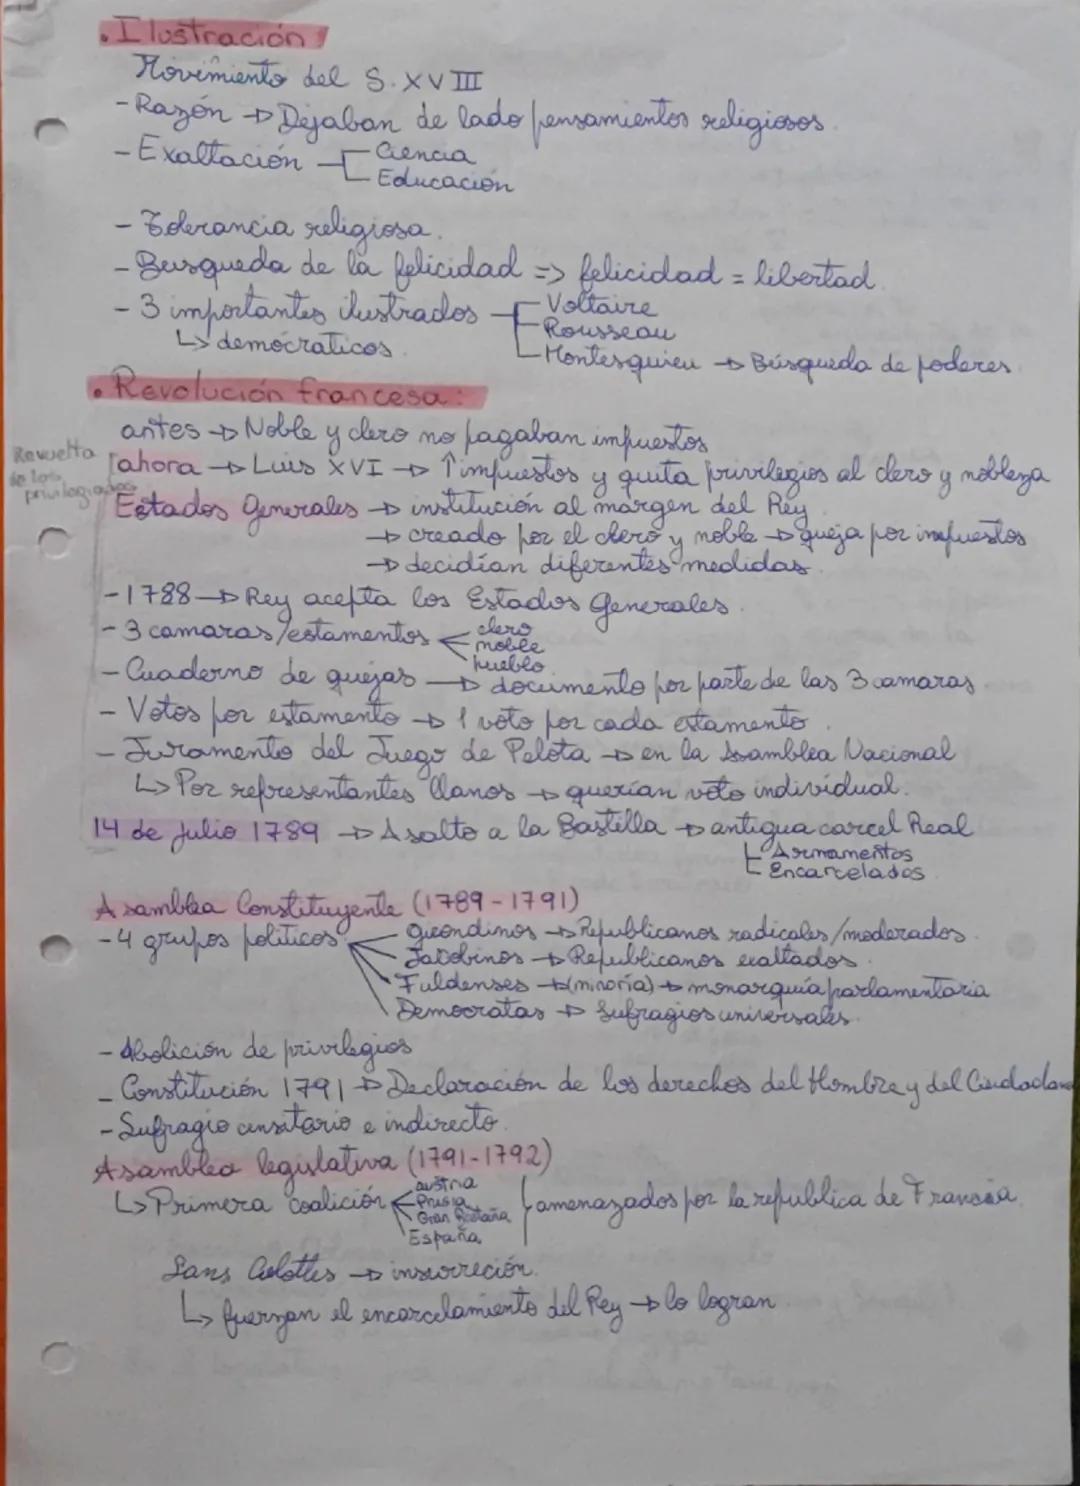 • Ilustración
Movimiento del S. XVIII
- Razón → Dejaban de lado pensamientos religiosos.
- Exaltación Ciencia
Educación
- Tolerancia religiosa.
- Busqueda de la felicidad => felicidad = libertad.
- 3 importantes ilustrados Voltaire
↳ democraticos. Rousseau
Montesquieu → Búsqueda de poderes.
• Revolución francesa:
antes → Noble y clero no pagaban impuestos
Revuelta de los privilegiados
ahora → Luis XVI → ↑impuestos y quita privilegios al clero y nobleza
Estados Generales → institución al margen del Rey.
→ creado por el clero y noble → queja por impuestos
→ decidían diferentes medidas.
- 1788 → Rey acepta los Estados Generales.
- 3 camaras/estamentos clero
noble
pueblo
- Cuaderno de quejas → documento por parte de las 3 camaras.
- Votos por estamento → 1 voto por cada estamento.
- Juramento del Juego de Pelota → en la Asamblea Nacional
↳ Por representantes llanos → querían voto individual.
14 de julio 1789 → Asalto a la Bastilla → antigua carcel Real
Armamentos
Encarcelados.
Asamblea Constituyente (1789-1791)
- 4 grupos políticos girondinos → Republicanos radicales/moderados.
Jacobinos → Republicanos exaltados.
Fuldenses → (minoría) → monarquía parlamentaria
Democratas → Sufragios universales.
- Abolición de privilegios
- Constitución 1791 → Declaración de los derechos del Hombre y del Ciudadano
- Sufragio censitario e indirecto.
Asamblea legislativa (1791-1792)
↳ Primera coalición austria
Prusia
Gran Bretaña
España
amenazados por la republica de Francia.
Sans Culottes → insurreción.
↳ fuerzan el encarcelamiento del Rey → lo logran